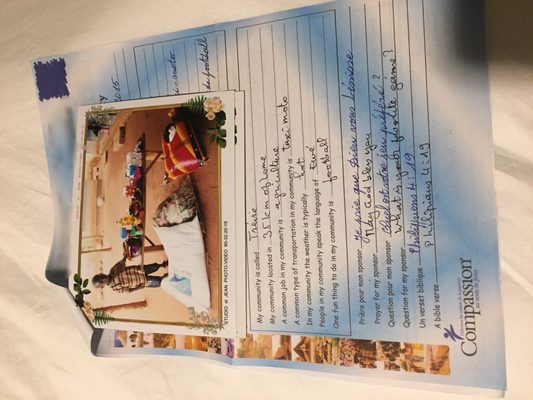 2015
taxi-moto
de football
STUDIO St JEAN PHOTO-VIDEO 90-32-20-18
My community is called Tsévié
My community located in 35 km of Lome
A common job in my community is agriculture
A common type of transportation in my community is taxi moto
In my community the weather is typically hot
People in my community speak the language of Ewé
One fun thing to do in my community is football
Prière pour mon sponsor Je prie que Dieu vous bénisse
Prayer for my sponsor May God bless you
Question pour mon sponsor Quel est votre jeu préféré?
Question for my sponsor What is your favorite game?
Un verset biblique Philippiens 4:19
A bible verse Philipians 4:19
Compassion
au nom de Jésus